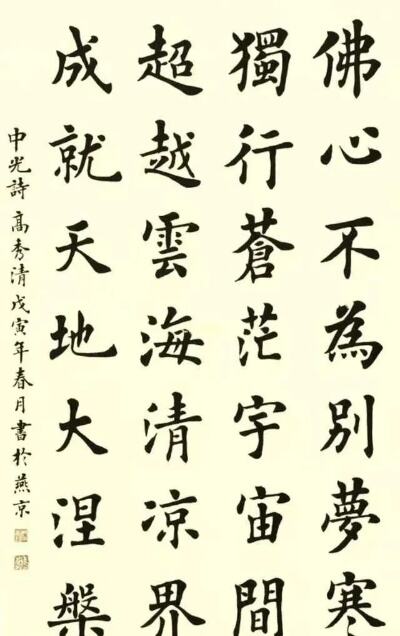 佛心不為別夢寒
獨行蒼茫宇宙間
超越雲海清凉界
成就天地大涅槃
申光詩 高秀清戊寅年春月書於燕京